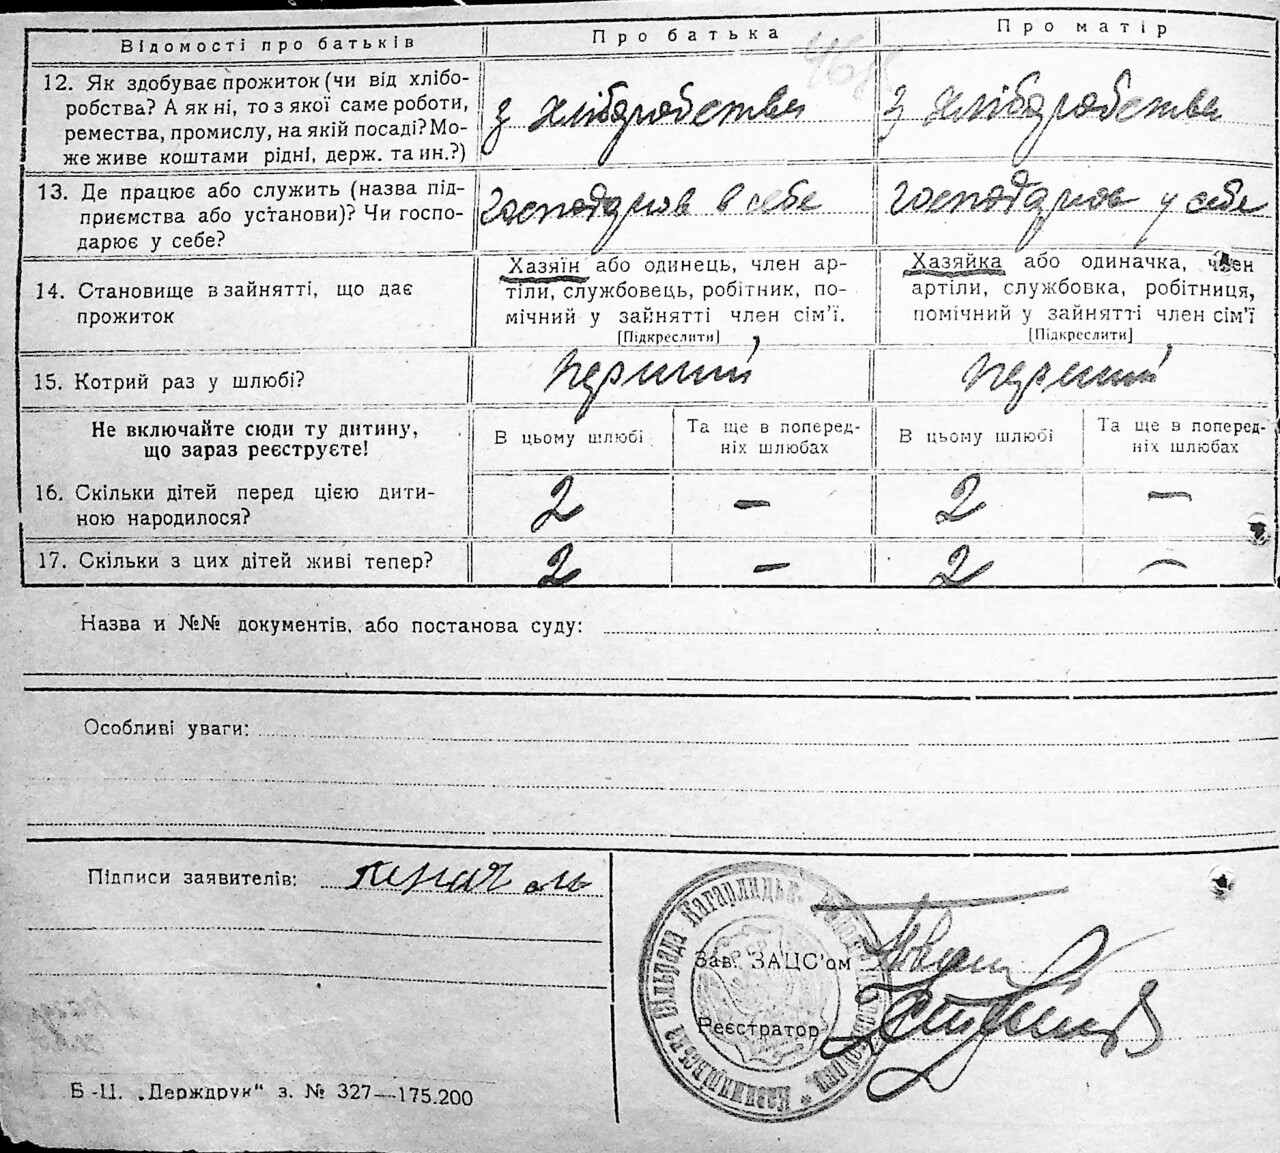 Відомості про батьків
Про батька
Про матір
12. Як здобуває прожиток (чи від хлібо-
робства? А як ні, то з якої саме роботи,
ремества, промислу, на якій посаді? Мо-
же живе коштами рідні, держ. та ин.?)
з хліборобства
з хліборобства
13. Де працює або служить (назва під-
приємства або установи)? Чи госпо-
дарює у себе?
в себе
у себе
14. Становище в зайнятті, що дає
прожиток
Хазяїн або одинець, член ар-
тіли, службовець, робітник, по-
мічний у зайнятті член сім'ї.
[Підкреслити]
Хазяйка або одиначка, член
артіли, службовка, робітниця,
помічний у зайнятті член сім'ї
[Підкреслити]
15. Котрий раз у шлюбі?
перший
перший
Не включайте сюди ту дитину,
що зараз реєструєте!
В цьому шлюбі
Та ще в поперед-
ніх шлюбах
В цьому шлюбі
Та ще в поперед-
ніх шлюбах
16. Скільки дітей перед цією дити-
ною народилося?
2
—
2
—
17. Скільки з цих дітей живі тепер?
2
—
2
—
Назва и №№ документів, або постанова суду:
Особливі уваги:
Підписи заявителів:
Зав. ЗАЦС'ом
Реєстратор
Сільрада Кагарлицьк.
Б-Ц. „Держдрук“ з. № 327—175.200